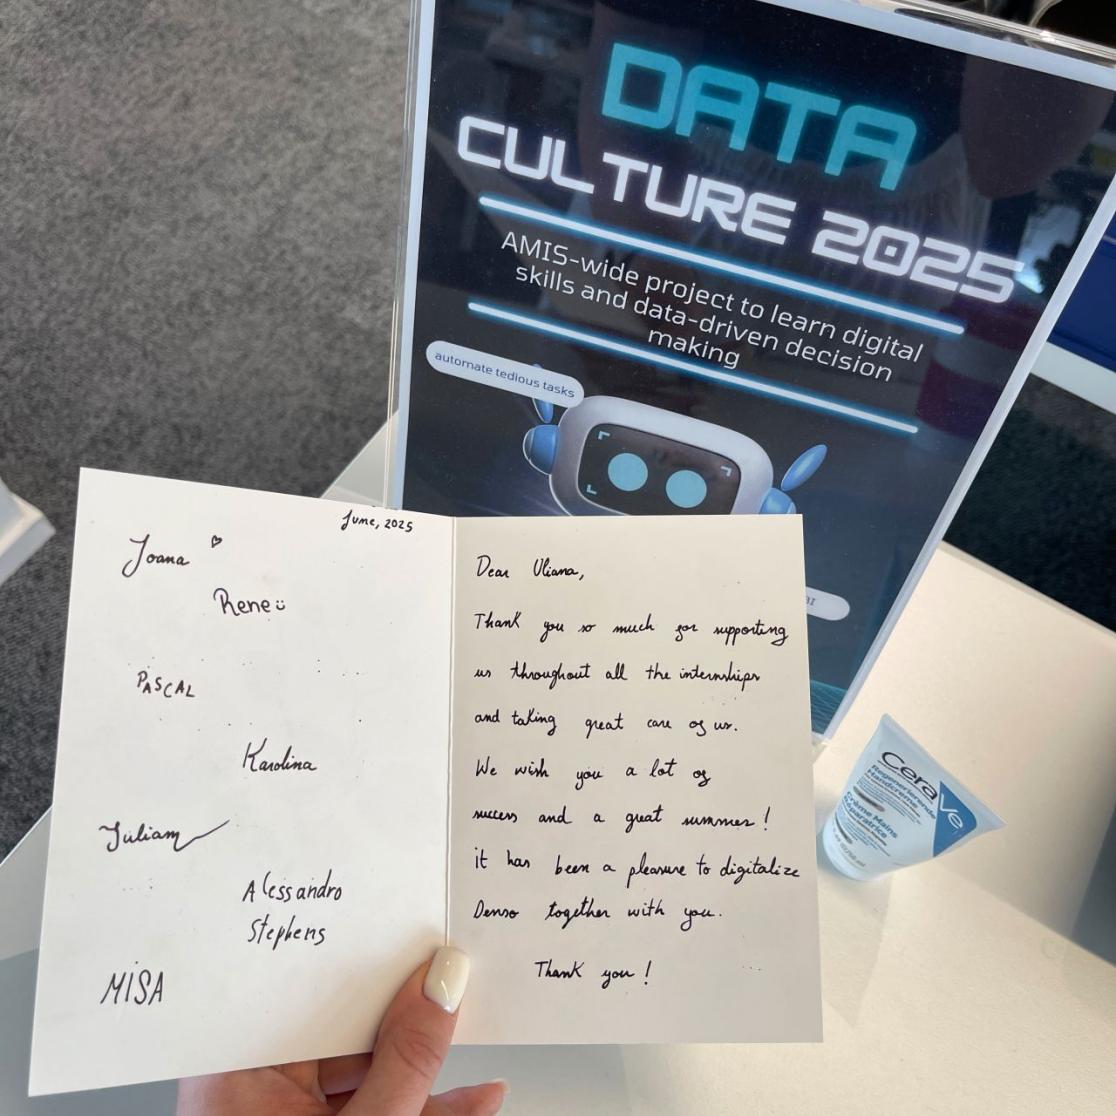 DATA
CULTURE 2025
AMIS-wide project to learn digital
skills and data-driven decision
making
automate tedious tasks
June, 2025
Joana
Rene
PASCAL
Karolina
Juliam
Alessandro
Stephens
MISA
Dear Uliana,
Thank you so much for supporting
us throughout all the internships
and taking great care of us.
We wish you a lot of
success and a great summer!
it has been a pleasure to digitalize
Denso together with you.
Thank you!
CeraVe
Regenerierende
Handcreme
Crème Mains
Réparatrice